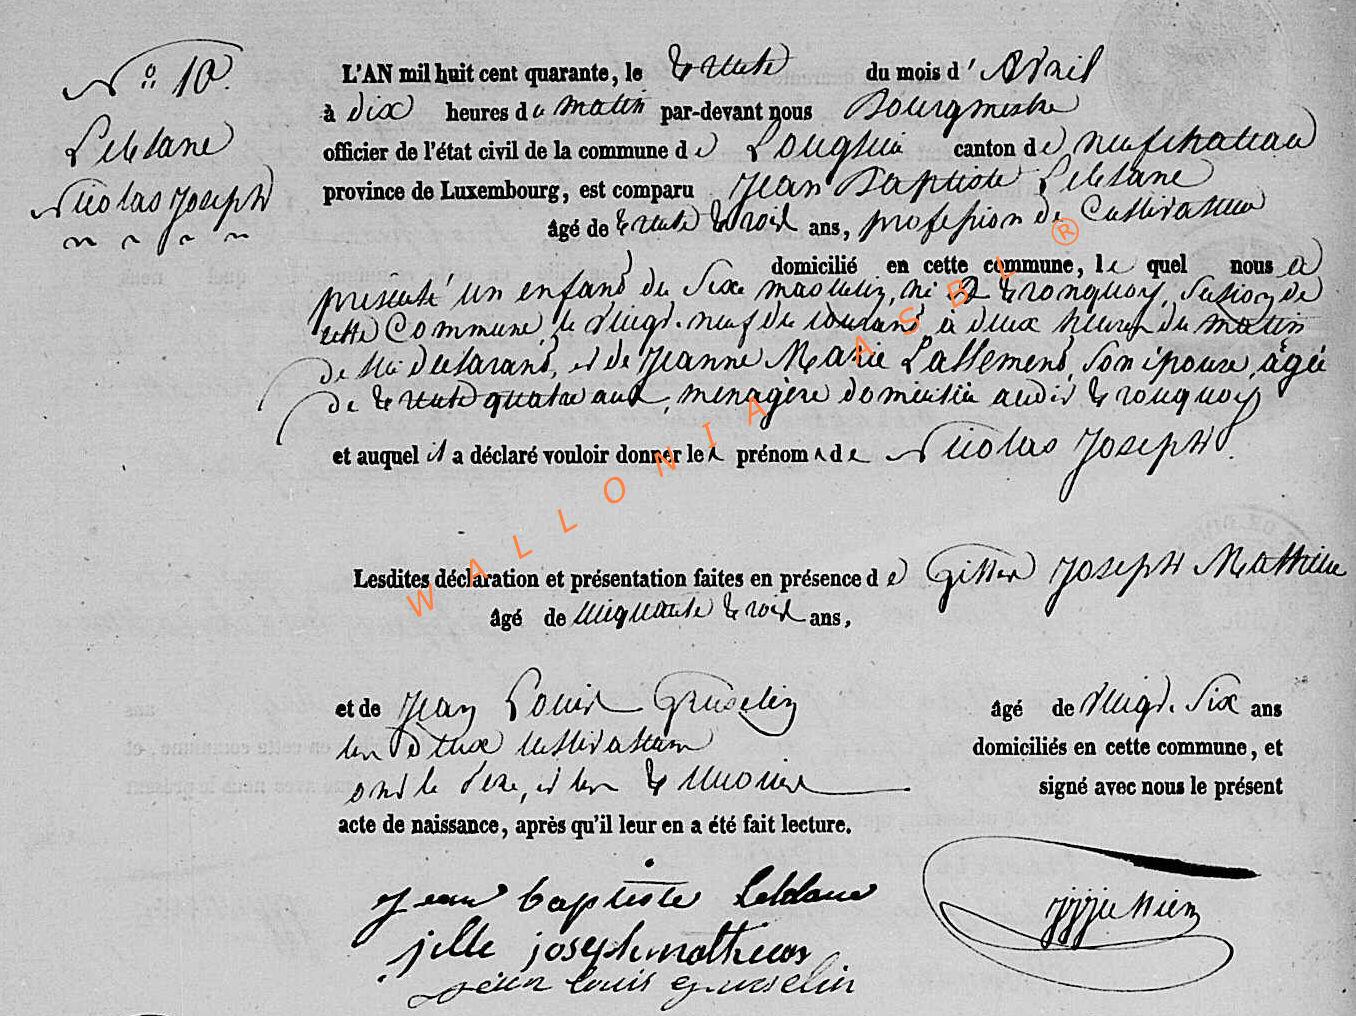 N° 10.
Leblane
Nicolas Joseph
L'AN mil huit cent quarante, le trente du mois d' Avril
à dix heures du matin par-devant nous Bourgmestre
officier de l'état civil de la commune de Longlier canton de neufchateau
province de Luxembourg, est comparu Jean Baptiste Leblane
âgé de trente trois ans, profession de Cultivateur
domicilié en cette commune, le quel nous a
présenté un enfant du sexe masculin, né à tronquoy, section de
cette Commune, le vingt-neuf du courant, à deux heures du matin
de lui déclarant, et de Jeanne Marie Lallemend, son épouse, âgée
de trente quatre ans, ménagère domiciliée audit tronquoy
et auquel il a déclaré vouloir donner les prénoms de Nicolas Joseph.
Lesdites déclaration et présentation faites en présence de Joseph Mathieu
âgé de cinquante trois ans,
et de Jean Louis Gruselin âgé de vingt-six ans
les deux cultivateurs domiciliés en cette commune, et
ont le père, et les témoins signé avec nous le présent
acte de naissance, après qu'il leur en a été fait lecture.
jean baptiste leblane
jille joseph mathieu
jean louis gruselin
WALLONIA ASBL ®